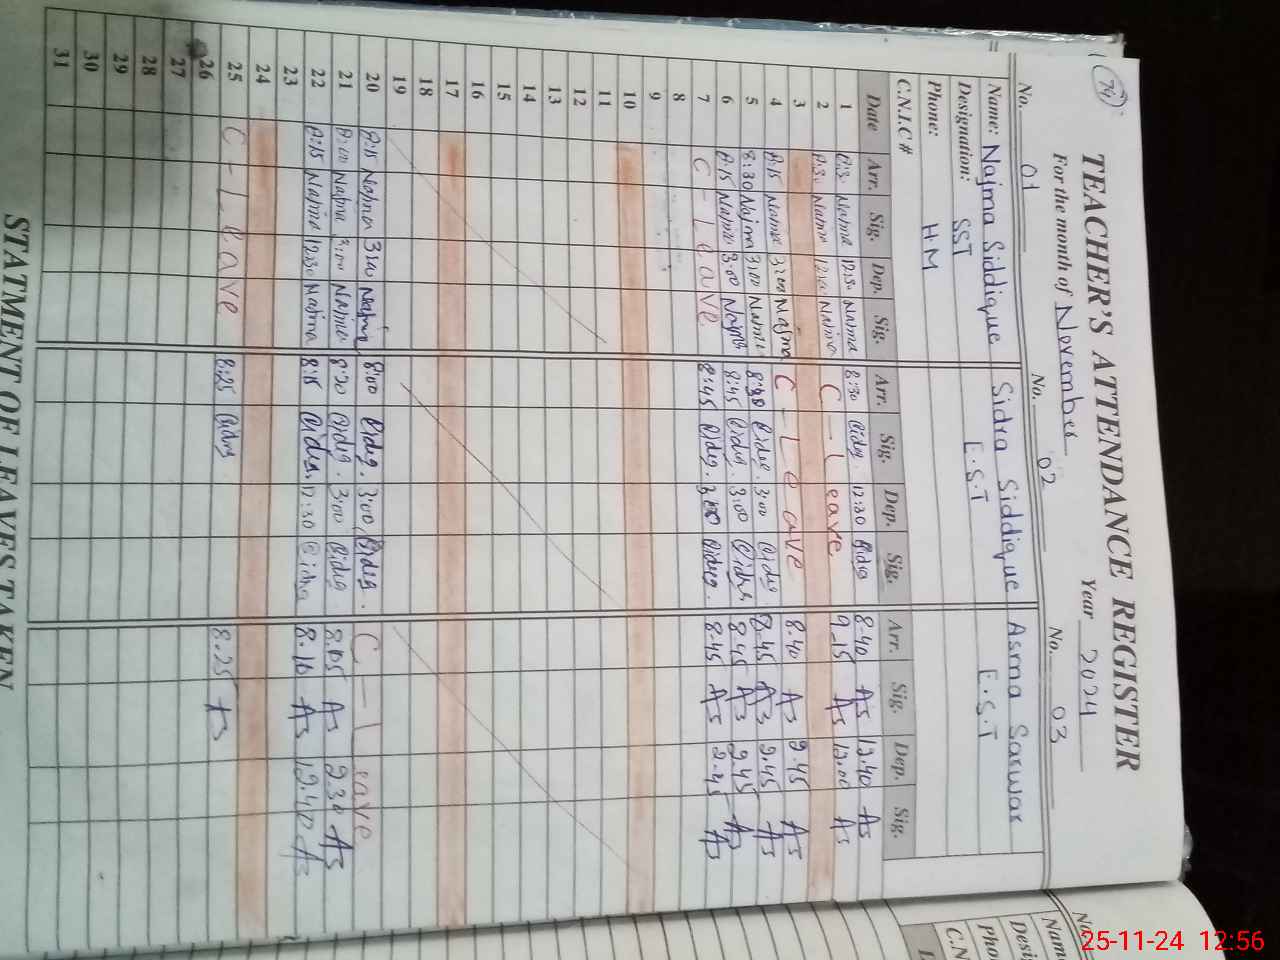 TEACHER'S ATTENDANCE REGISTER
For the month of November Year 2024
No. 01 No. 02 No. 03
Name: Najma Siddique Sidra Siddique Asma Sarwar
Designation: SST E.S.T E.S.T
Phone: H.M
C.N.I.C #
Date Arr. Sig. Dep. Sig. Arr. Sig. Dep. Sig. Arr. Sig. Dep. Sig.
1 8:30 Najma 12:30 Najma 8:30 Sidra 12:30 Sidra 8.40 AS 12.40 AS
2 8:30 Najma Najma C - Leave 9.15 AS 12.00 AS
3
4 8:15 Najma 3:00 Najma C - Leave 8.40 AS 2.45 AS
5 8:30 Najma 3:00 Najma Sidra 3:00 Sidra 8.45 AS 2.45 AS
6 8:15 Najma 3:00 Najma 8:45 Sidra 3:00 Sidra 8.45 AS 2.45 AS
7 C - Leave 8:45 Sidra 3:00 Sidra 8.45 AS 2.45 AS
8
9
10
11
12
13
14
15
16
17
18
19
20 8:15 Najma 3:00 Najma 8:00 Sidra 3:00 Sidra C - Leave
21 8:00 Najma 3:00 Najma 8:20 Sidra 3:00 Sidra 8.05 AS 2.30 AS
22 8:15 Najma 12:30 Najma 8:15 Sidra 12:30 Sidra 8.10 AS 12.40 AS
23
24
25 C - Leave 8:25 Sidra 8.25 AS
26
27
28
29
30
31
STATMENT OF LEAVES TAKEN
No.
Name
Desig
Pho
C.N
25-11-24 12:56